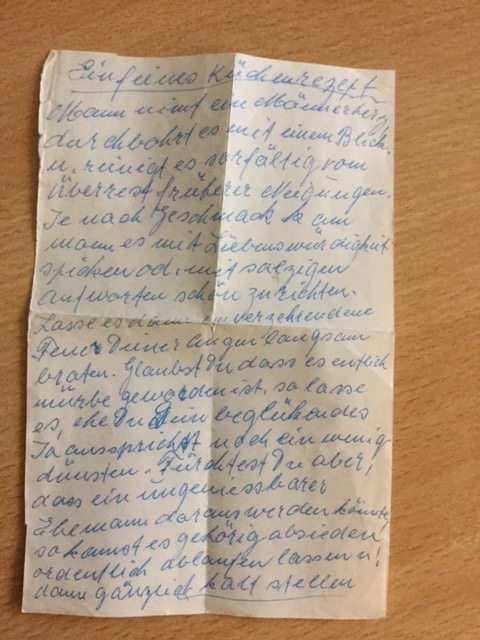 Ein feines Küchenrezept
Mann nimt ein Männerherz
durchbohrt es mit einem Blick
u. reinigt es sorfältig vom
Überrest früherer Neigungen.
Je nach Geschmack kann
mann es mit Liebenswürdigkeit
spicken od. mit salzigen
Antworten schön zurichten.
Lasse es dann verzehrendem
Feuer Deiner Augen langsam
braten. Glaubst Du dass es entlich
mürbe geworden ist, so lasse
es, ehe Du Dein beglükendes
Ja aussprichst noch ein wenig
dünsten. Fürchtest Du aber,
dass ein ungeniessbarer
Ehemann daraus werden könnte,
so kannst es gehörig absieden
ordentlich ablaufen lassen u!
dann gänzlich kalt stellen